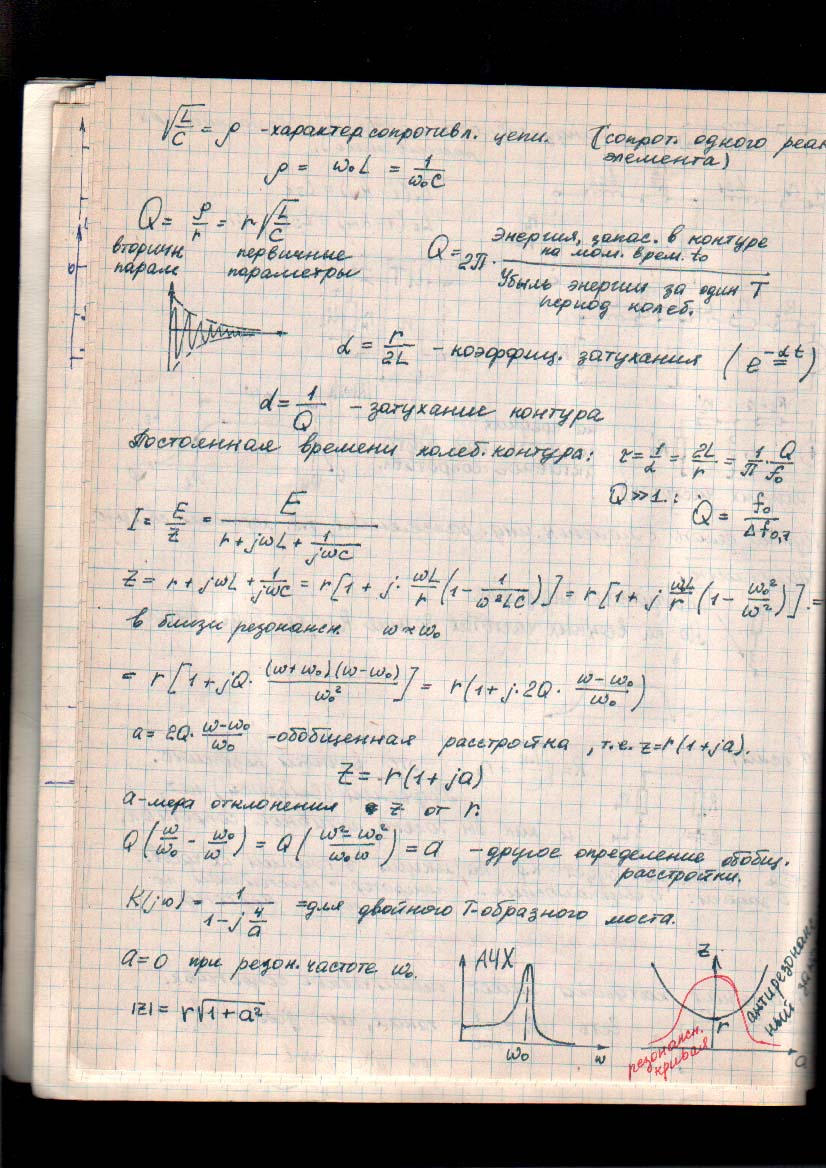 √(L/C) = ρ - характер сопротивл. цепи. (сопрот. одного реак
элемента)
ρ = ω₀L = 1/(ω₀C)
Q = ρ/r = r√(L/C)
вторичн первичные
парам параметры
Q = 2П · Энергия, запас. в контуре
на мом. врем. t₀
Убыль энергии за один T
период колеб.
α = r/2L - коэффиц. затухания (e^(-αt))
d = 1/Q - затухание контура
Постоянная времени колеб. контура: τ = 1/α = 2L/r = 1/П · Q/f₀
Q>>1.: Q = f₀/Δf₀,₇
I = E/Z = E/(r + jωL + 1/(jωC))
Z = r + jωL + 1/(jωC) = r[1 + j · ωL/r (1 - 1/(ω²LC))] = r[1 + j ωL/r (1 - ω₀²/ω²)]. =
в близи резонансн. ω ≈ ω₀
= r[1 + jQ · (ω+ω₀)(ω-ω₀)/ω₀²] = r(1 + j·2Q · (ω-ω₀)/ω₀)
a = 2Q · (ω-ω₀)/ω₀ - обобщенная расстройка, т.е. z = r(1+ja).
Z = r(1+ja)
a - мера отклонения z от r.
Q(ω/ω₀ - ω₀/ω) = Q((ω²-ω₀²)/(ω₀ω)) = a - другое определение обобщ.
расстройки.
K(jω) = 1/(1 - j 4/a) = для двойного Т-образного моста.
a = 0 при резон. частоте ω₀.
|Z| = r√(1+a²)
АЧХ
ω₀
ω
z
r
a
резонансн.
кривая
антирезонанс
ный